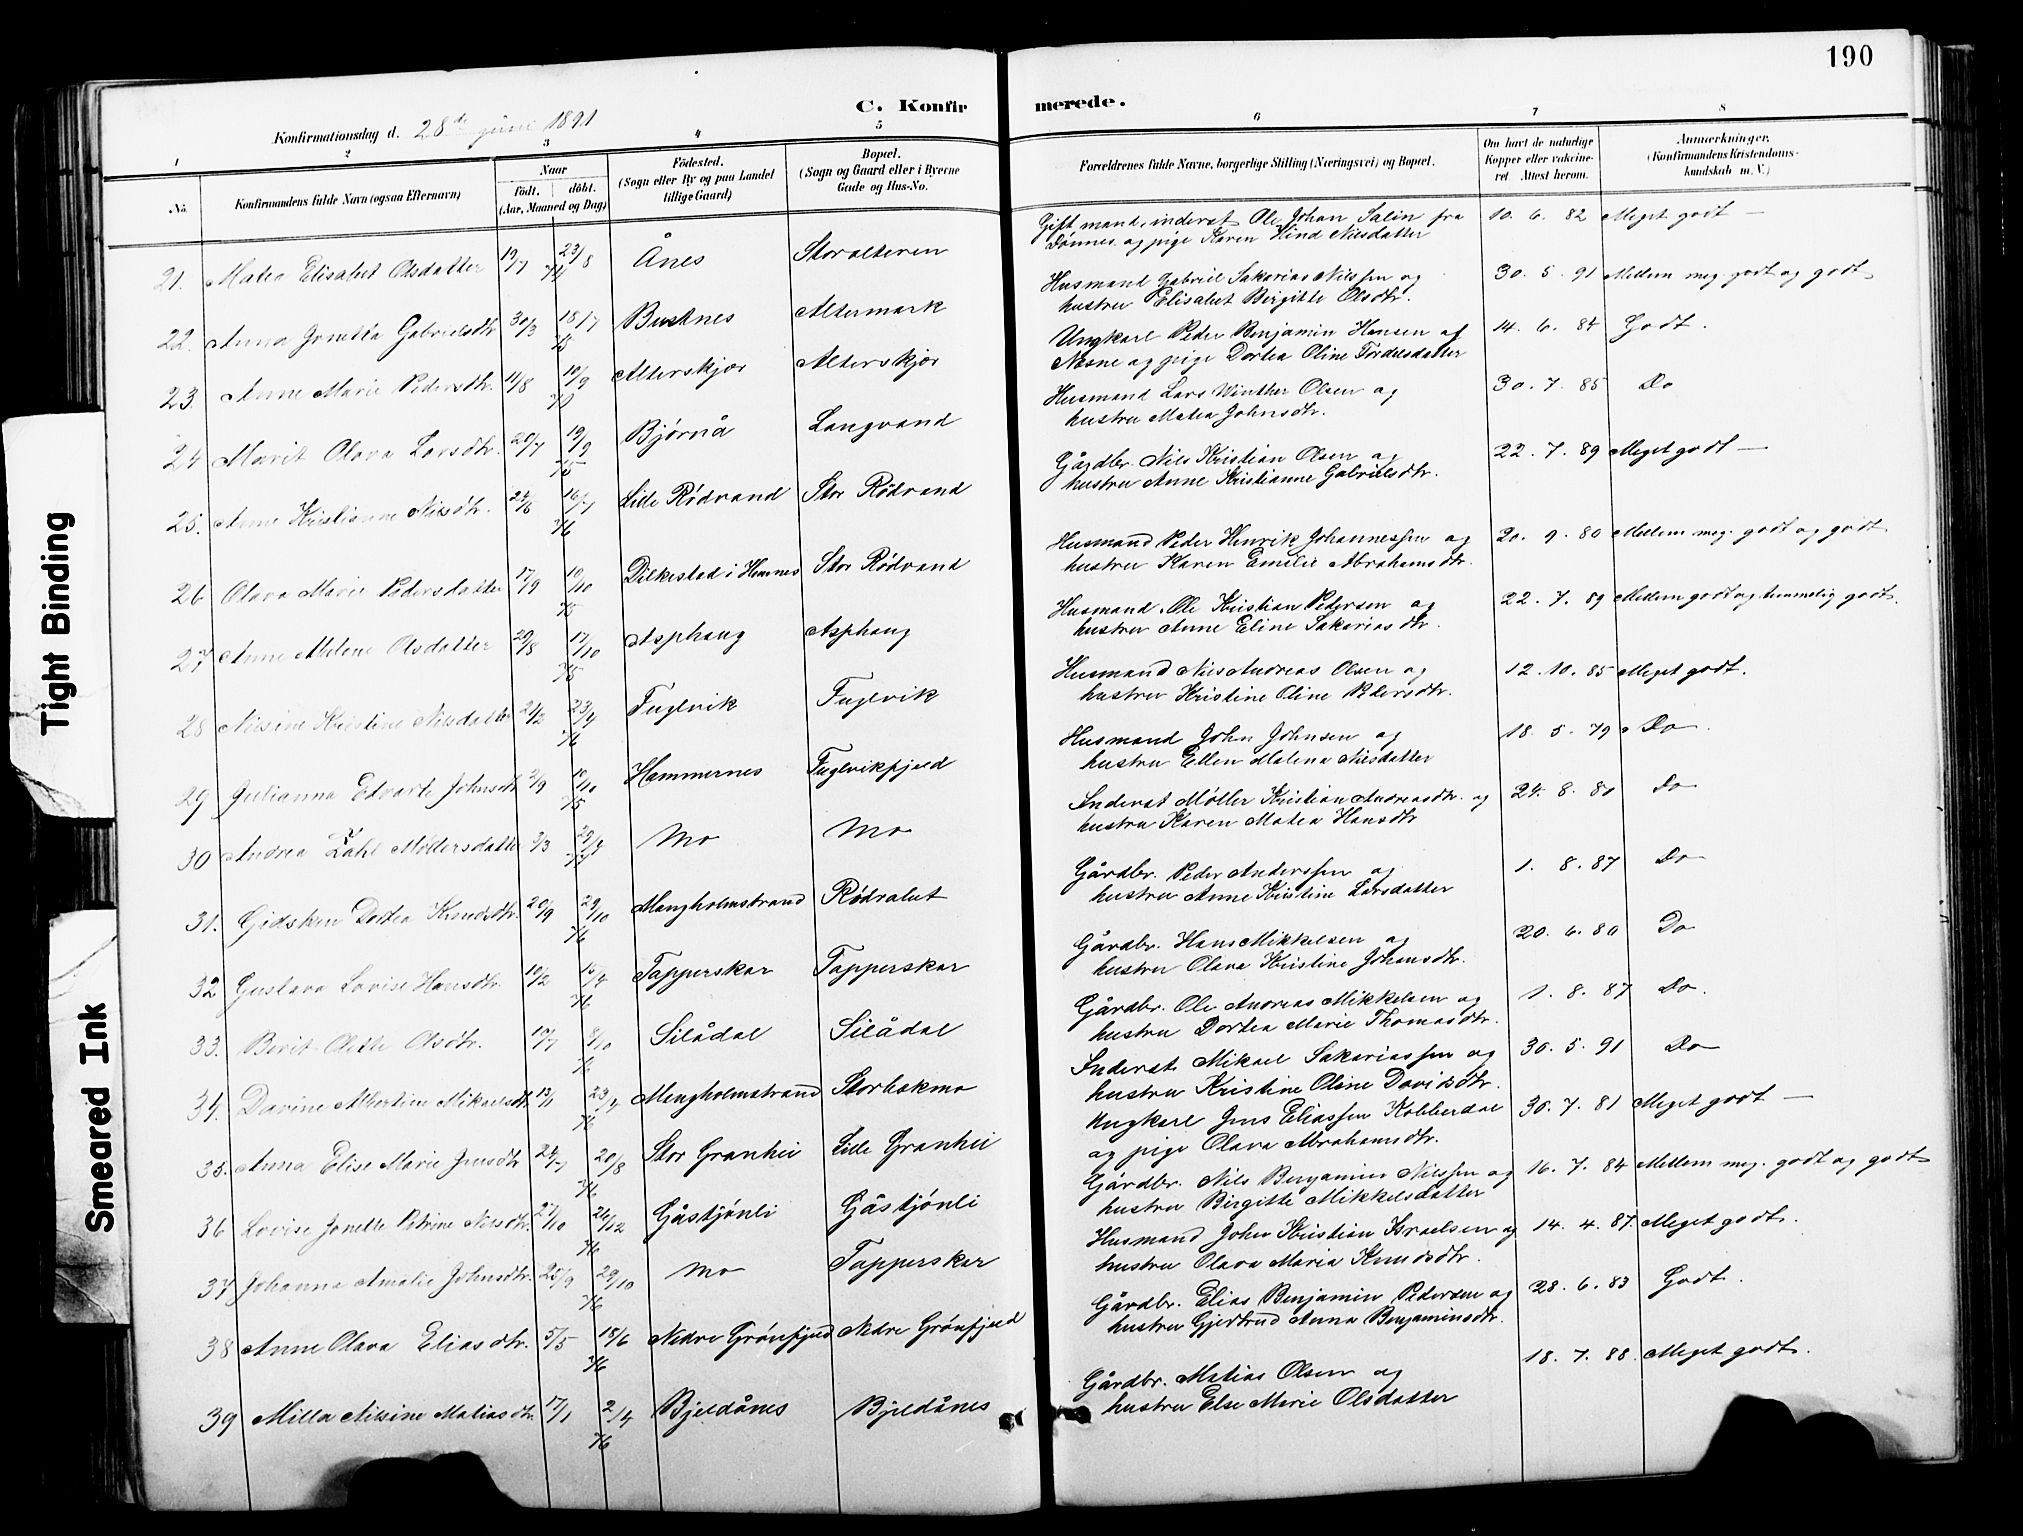 190
C. Konfirmerede.
Konfirmationsdag d. 28de juni 1891
1 2 3 4 5 6 7 8
No. Konfirmandens fulde Navn (ogsaa Efternavn) Naar födt. döbt. (Aar, Maaned og Dag) Födested. (Sogn eller By og paa Landet tillige Gaard) Bopæl. (Sogn og Gaard eller i Byerne Gade og Hus-No. Forældrenes fulde Navne, borgerlige Stilling (Næringsvei) og Bopæl. Om havt de naturlige Kopper eller vaccineret. Attest herom. Anmerkninger. (Konfirmandens Kristendomskundskab m. V.)
21. Matea Elisabet Olsdatter 19/7 23/8 Ånes Storalteren Gift mand, inderst Ole Johan Salin fra Dønnes og pige Karen Hind Nilsdatter 10. 6. 82 Meget godt —
22. Anna Jonetta Gabrielsdtr 30/3 18/7 75 Bustnes Altermark Husmand Gabriel Sakarias Nilssen og hustru Elisabet Birgitte Olsdtr. 30. 5. 91 Mellem meg. godt og godt
23. Anne Marie Pedersdtr. 11/8 10/9 Alterskjær Alterskjær Ungkarl Peder Benjamin Hansen af Nesne og pige Dortea Oline Tordelsdatter 14. 6. 84 Godt.
24 Marit Olava Larsdtr. 20/7 19/9 75 Bjørnå Langvand Husmand Lars Winther Olsen og hustru Matea Johnsdtr. 30. 7. 85 Do
25. Anne Kristianne Nilsdtr. 24/6 16/7 76 Lille Rödvand Stor Rödvand Gårdbr. Nils Kristian Olsen og hustru Anne Kristianne Gabrielsdtr. 22. 7. 89 Meget godt —
26 Olava Marie Pedersdatter 17/9 10/10 75 Dilkestad i Hemnes Stor Rödvand Husmand Peder Henrik Johannessen og hustru Karen Emelie Abrahamsdtr. 20. 9. 80 Mellem meg. godt og godt
27 Anne Malene Olsdatter 29/8 17/10 75 Asphaug Asphaug Husmand Ole Kristian Pedersen og hustru Anne Eline Sakariasdtr. 22. 7. 89 Mellem godt og temmelig godt.
28 Nilsine Kristine Nilsdatter 24/2 23/4 76 Fuglvik Fuglvik Husmand Nils Andreas Olsen og hustru Kristine Oline Pedersdtr. 12. 10. 85 Meget godt.
29 Julianna Edvarte Johnsdtr 2/9 10/10 75 Hammernes Fuglvikfjeld Husmand John Johnsen og hustru Ellen Malena Nilsdatter 18. 5. 79 Do
30 Andrea Zahl Møllersdatter 3/3 29/4 Mo Mo Inderst Møller Kristian Andreasdtr. og hustru Karen Matea Hansdtr 24. 8. 80 Do
31. Gidsken Dortea Knudsdtr. 20/9 29/10 76 Mengholmstrand Rödvalut Gårdbr. Peder Anderssen og hustru Anne Kristine Larsdatter 1. 8. 87 Do
32 Gustava Lovise Hansdtr. 10/2 15/4 76 Tapperskar Tapperskar Gårdbr. Hans Mikkelsen og hustru Olava Kristine Johansdtr. 20. 6. 80 Do
33. Berit Olette Olsdtr. 10/7 8/10 Silådal Silådal Gårdbr. Ole Andreas Mikkelsen og hustru Dortea Marie Thomasdtr. 1. 8. 87 Do.
34. Davine Albertine Mikaelsdtr 13/1 23/4 76 Mengholmstrand Storbakmo Inderst Mikael Sakariassen og hustru Kristine Oline Davidsdtr. 30. 5. 91 Do
35. Anna Elise Marie Jensdtr 24/7 20/8 76 Stor Granhei Lille Granhei Ungkarl Jens Eliassen Kobberdal og pige Olava Abrahamsdtr. 30. 7. 81 Meget godt —
36 Lovise Jonette Petrine Nilsdtr. 27/10 26/12 76 Gåstjönli Gåstjönli Gårdbr. Nils Benjamin Nilssen og hustru Birgitte Mikkelsdatter 16. 7. 84 Mellem meg. godt og godt
37 Johanna Amalie Johnsdtr. 25/9 29/10 76 Mo Tapperskar Husmand John Kristian Israelsen og hustru Olava Maria Knudsdtr. 14. 4. 87. Meget godt.
38 Anne Olava Eliasdtr. 5/5 18/6 76 Nedre Grönfjeld Nedre Grönfjeld Gårdbr. Elias Benjamin Pedersen og hustru Gjertrud Anna Benjaminsdtr. 28. 6. 83 Godt.
39 Milla Nilsine Matiasdtr. 17/1 2/4 76 Bjeldånes Bjeldånes Gårdbr. Matias Olsen og hustru Else Marie Olsdatter 18. 7. 88. Meget godt.
Tight Binding
Smeared Ink